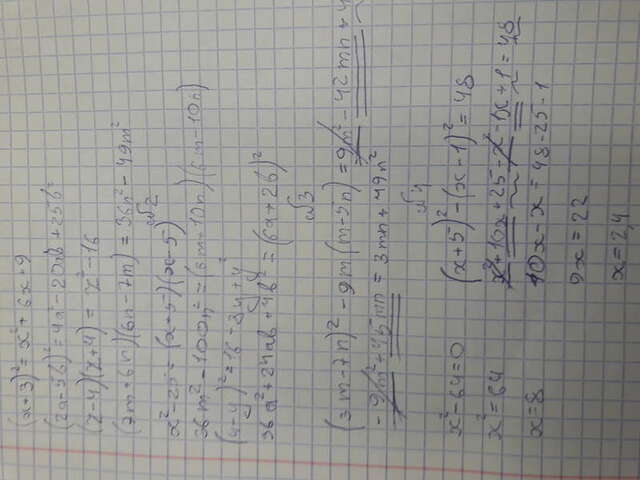 (x+3)² = x² + 6x + 9
(2a-5b)² = 4a² - 20ab + 25b²
(z-4)(z+4) = z² - 16
(7m+6n)(6n-7m) = 36n² - 49m²
№2
x² - 25 = (x+5)(x-5)
36m² - 100n² = (6m+10n)(6m-10n)
(4-y)² = 16 - 8y + y²
36a² + 24ab + 4b² = (6a+2b)²
№3
(3m-7n)² - 9m(m-5n) = 9m² - 42mn +
- 9m² + 45mn = 3mn + 49n²
№4
x² - 64 = 0
x² = 64
x = 8
(x+5)² - (x-1)² = 48
x² + 10x + 25 - x² - x + 1 = 48
10x - x = 48 - 25 - 1
9x = 22
x = 2,4